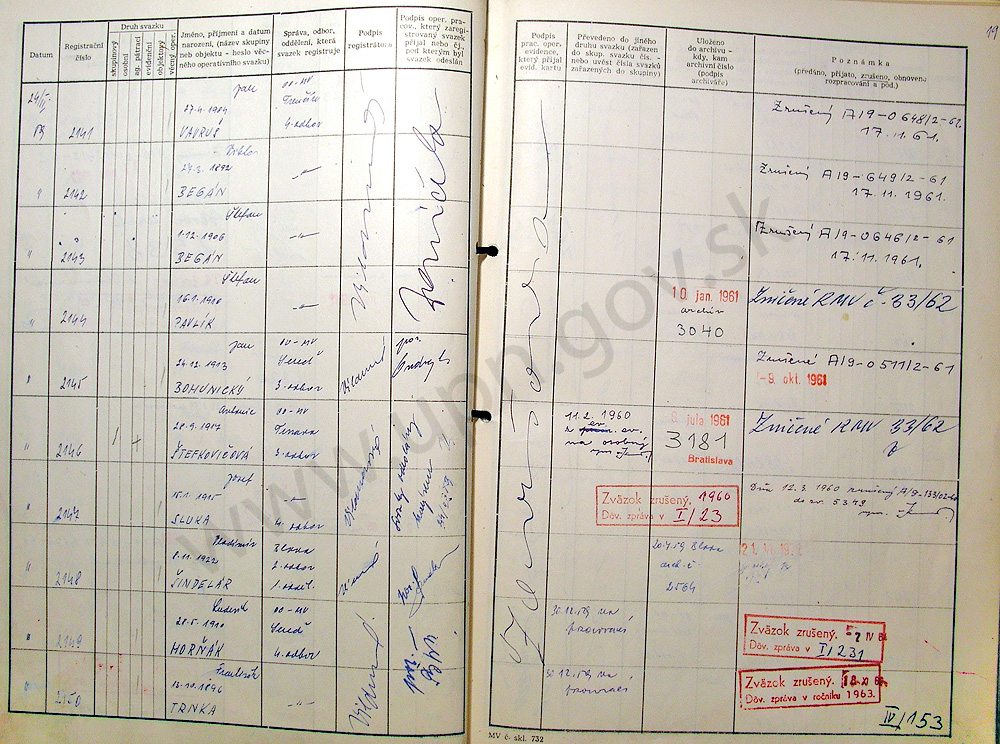 19
Datum
Registrační číslo
Druh svazku
skupinový
osobní
ag. pátrací
evidenční
objektový
věcný oper.
Jméno, příjmení a datum narození, (název skupiny neb objektu - heslo věcného operativního svazku)
Správa, odbor, oddělení, která svazek registruje
Podpis registrátora
Podpis oper. pracov., který zaregistrovaný svazek přijal nebo čj., pod kterým byl svazek odeslán
Podpis prac. oper. evidence, který přijal evid. kartu
Převedeno do jiného druhu svazku (zařazen do skup. svazku čís. - nebo uvést čísla svazků zařazených do skupiny)
Uloženo do archivu - kdy, kam archivní číslo (podpis archiváře)
Poznámka
(předáno, přijato, zrušeno, obnoveno rozpracování a pod.)
2141
Jan
27.4.1904
VAVRUŠ
OO-MV
Trenčín
4. odbor
Zrušený A/9-0648/2-61.
17.11.61.
2142
Viktor
24.3.1892
BEGÁN
Zrušený A/9-649/2-61
17.11.1961.
2143
Štefan
1.12.1906
BEGÁN
Zrušený A/9-0646/2-61
17.11.1961.
2144
Štefan
16.1.1900
PAVLÍK
10. jan. 1961
archív
3040
Zničené RMV č. 33/62
2145
Jan
24.12.1913
BOHUNICKÝ
OO-MV
Sereď
3. odbor
Ondrej
Zrušené A/9-0511/2-61
-9. okt. 1961
2146
Antonie
28.9.1917
ŠTEFKOVIČOVÁ
OO-MV
Trnava
3. odbor
11.2.1960
na osobný
6. júla 1961
3181
Bratislava
Zničené RMV 33/62
2147
Josef
15.1.1915
SLUKA
4. odbor
Zväzok zrušený. 1960
Dôv. zpráva v I/23
Dňa 12.3.1960 zrušený A/9-133/02-60
do sv. 5349
2148
Vladimír
8.11.1922
ŠINDELÁR
Blava
2. odbor
1. oddel.
20.4.59 Blava
arch. č.
2564
2149
Ludevít
28.5.1910
HORŇÁK
OO-MV
Sereď
4. odbor
30.12.59 na
pracovací
Zväzok zrušený. -7 IV 61
Dôv. zpráva v I/231
2150
František
12.10.1896
TRNKA
30.12.59 na
pracovací
Zväzok zrušený.
Dôv. zpráva v ročníku 1963.
IV/153
MV č. skl. 732
www.upn.gov.sk